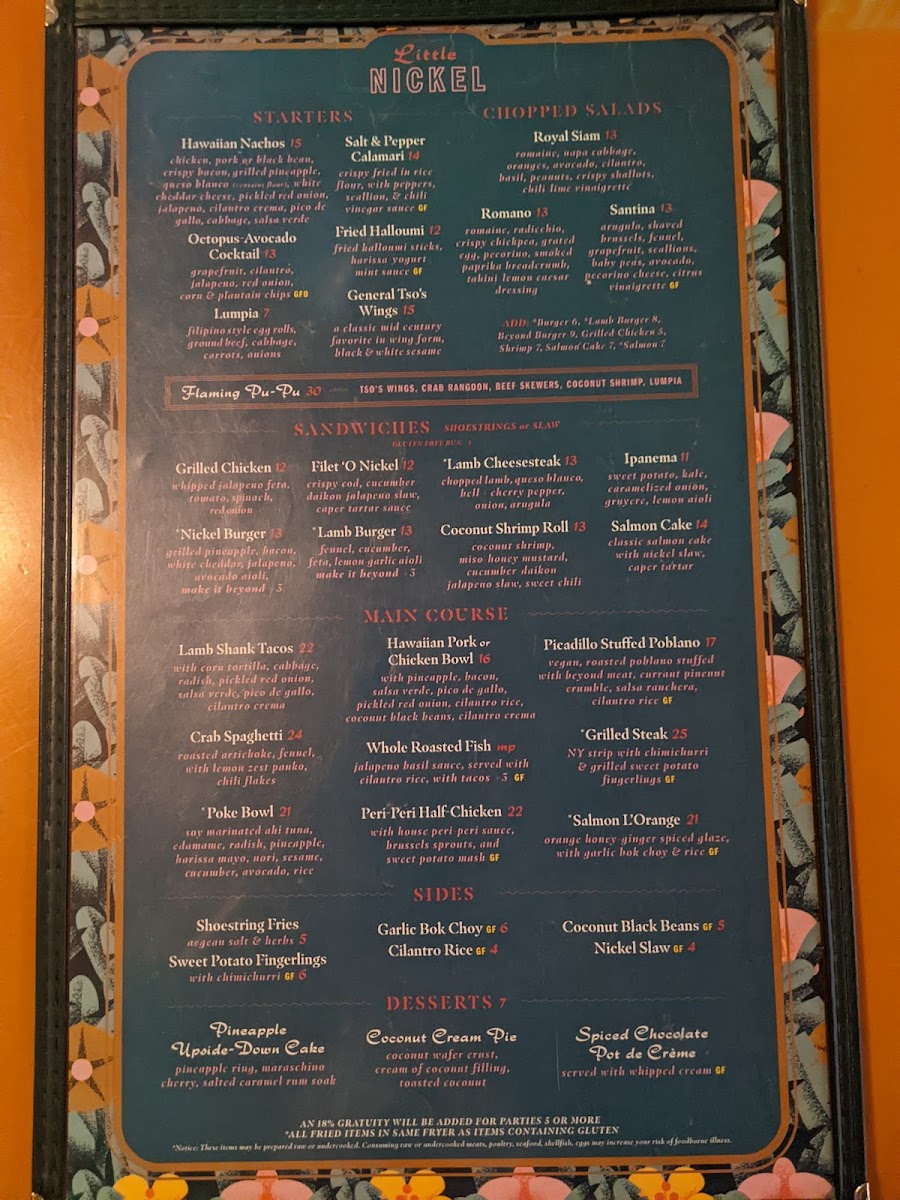 Little
NICKEL
STARTERS
Hawaiian Nachos 15
chicken, pork or black bean,
crispy bacon, grilled pineapple,
queso blanco (contains flour), white
cheddar cheese, pickled red onion,
jalapeno, cilantro crema, pico de
gallo, cabbage, salsa verde
Octopus-Avocado
Cocktail 13
grapefruit, cilantro,
jalapeno, red onion,
corn & plantain chips GFO
Lumpia 7
filipino style egg rolls,
ground beef, cabbage,
carrots, onions
Salt & Pepper
Calamari 14
crispy fried in rice
flour, with peppers,
scallion, & chili
vinegar sauce GF
Fried Halloumi 12
fried halloumi sticks,
harissa yogurt
mint sauce GF
General Tso's
Wings 15
a classic mid century
favorite in wing form,
black & white sesame
CHOPPED SALADS
Royal Siam 13
romaine, napa cabbage,
oranges, avocado, cilantro,
basil, peanuts, crispy shallots,
chili lime vinaigrette
Romano 13
romaine, radicchio,
crispy chickpea, grated
egg, pecorino, smoked
paprika breadcrumb,
tahini lemon caesar
dressing
Santina 13
arugula, shaved
brussels, fennel,
grapefruit, scallions,
baby peas, avocado,
pecorino cheese, citrus
vinaigrette GF
ADD: *Burger 6, *Lamb Burger 8,
Beyond Burger 9, Grilled Chicken 5,
Shrimp 7, Salmon Cake 7, *Salmon 7
Flaming Pu-Pu 30 TSO'S WINGS, CRAB RANGOON, BEEF SKEWERS, COCONUT SHRIMP, LUMPIA
SANDWICHES SHOESTRINGS or SLAW
GLUTEN FREE BUN
Grilled Chicken 12
whipped jalapeno feta,
tomato, spinach,
red onion
Filet 'O Nickel 12
crispy cod, cucumber
daikon jalapeno slaw,
caper tartar sauce
*Lamb Cheesesteak 13
chopped lamb, queso blanco,
bell + cherry pepper,
onion, arugula
Ipanema 11
sweet potato, kale,
caramelized onion,
gruyere, lemon aioli
*Nickel Burger 13
grilled pineapple, bacon,
white cheddar, jalapeno,
avocado aioli,
make it beyond +3
*Lamb Burger 13
fennel, cucumber,
feta, lemon garlic aioli
make it beyond +3
Coconut Shrimp Roll 13
coconut shrimp,
miso honey mustard,
cucumber daikon
jalapeno slaw, sweet chili
Salmon Cake 14
classic salmon cake
with nickel slaw,
caper tartar
MAIN COURSE
Lamb Shank Tacos 22
with corn tortilla, cabbage,
radish, pickled red onion,
salsa verde, pico de gallo,
cilantro crema
Hawaiian Pork or
Chicken Bowl 16
with pineapple, bacon,
salsa verde, pico de gallo,
pickled red onion, cilantro rice,
coconut black beans, cilantro crema
Picadillo Stuffed Poblano 17
vegan, roasted poblano stuffed
with beyond meat, currant pinenut
crumble, salsa ranchera,
cilantro rice GF
Crab Spaghetti 24
roasted artichoke, fennel,
with lemon zest panko,
chili flakes
Whole Roasted Fish mp
jalapeno basil sauce, served with
cilantro rice, with tacos +3 GF
*Grilled Steak 25
NY strip with chimichurri
& grilled sweet potato
fingerlings GF
*Poke Bowl 21
soy marinated ahi tuna,
edamame, radish, pineapple,
harissa mayo, nori, sesame,
cucumber, avocado, rice
Peri-Peri Half-Chicken 22
with house peri peri sauce,
brussels sprouts, and
sweet potato mash GF
*Salmon L'Orange 21
orange honey-ginger spiced glaze,
with garlic bok choy & rice GF
SIDES
Shoestring Fries
aegean salt & herbs 5
Sweet Potato Fingerlings
with chimichurri GF 6
Garlic Bok Choy GF 6
Cilantro Rice GF 4
Coconut Black Beans GF 5
Nickel Slaw GF 4
DESSERTS 7
Pineapple
Upside-Down Cake
pineapple ring, maraschino
cherry, salted caramel rum soak
Coconut Cream Pie
coconut wafer crust,
cream of coconut filling,
toasted coconut
Spiced Chocolate
Pot de Crème
served with whipped cream GF
AN 18% GRATUITY WILL BE ADDED FOR PARTIES 5 OR MORE
*ALL FRIED ITEMS IN SAME FRYER AS ITEMS CONTAINING GLUTEN
*Notice: These items may be prepared raw or undercooked. Consuming raw or undercooked meats, poultry, seafood, shellfish, eggs may increase your risk of foodborne illness.